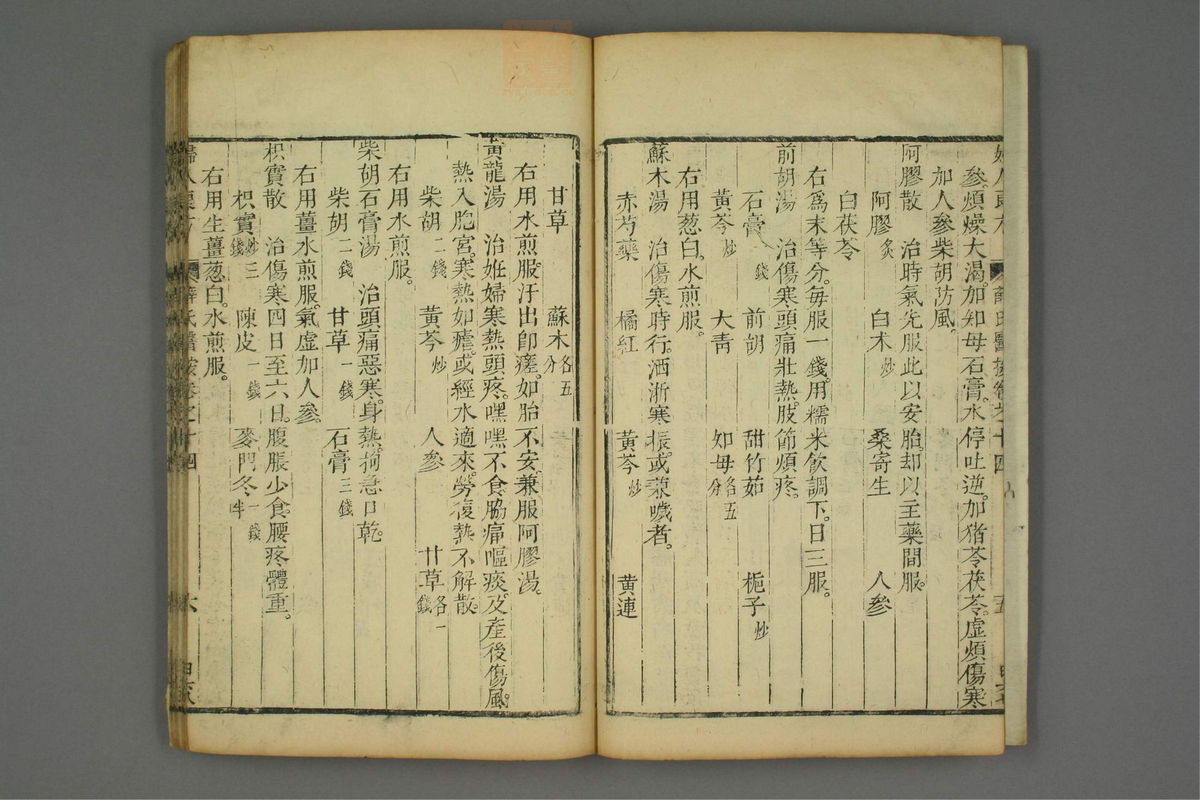 參煩燥大渴加知母石膏水停吐逆加猪苓茯苓虛煩傷寒
加人參柴胡防風
阿膠散　治時氣先服此以安胎却以主藥間服
阿膠炙　白朮炒　桑寄生　人參
白茯苓
右爲末等分每服一錢用糯米飲調下日三服
前胡湯　治傷寒頭痛壯熱肢節煩疼
石膏一錢　前胡　甜竹茹　梔子炒
黃芩炒　大青　知母各五分
右用葱白水煎服
蘇木湯　治傷寒時行洒淅寒振或兼噦者
赤芍藥　橘紅　黃芩炒　黃連
甘草　蘇木各五分
右用水煎服汗出即瘥如胎不安兼服阿膠湯
黃龍湯　治姙婦寒熱頭疼嘿嘿不食脇痛嘔痰及產後傷風
熱入胞宮寒熱如瘧或經水適來勞復熱不解散
柴胡二錢　黃芩炒　人參　甘草各一錢
右用水煎服
柴胡石膏湯　治頭痛惡寒身熱拘急口乾
柴胡二錢　甘草一錢　石膏三錢
右用薑水煎服氣虛加人參
枳實散　治傷寒四日至六日腹脹少食腰疼體重
枳實炒三錢　陳皮一錢　麥門冬一錢半
右用生薑葱白水煎服